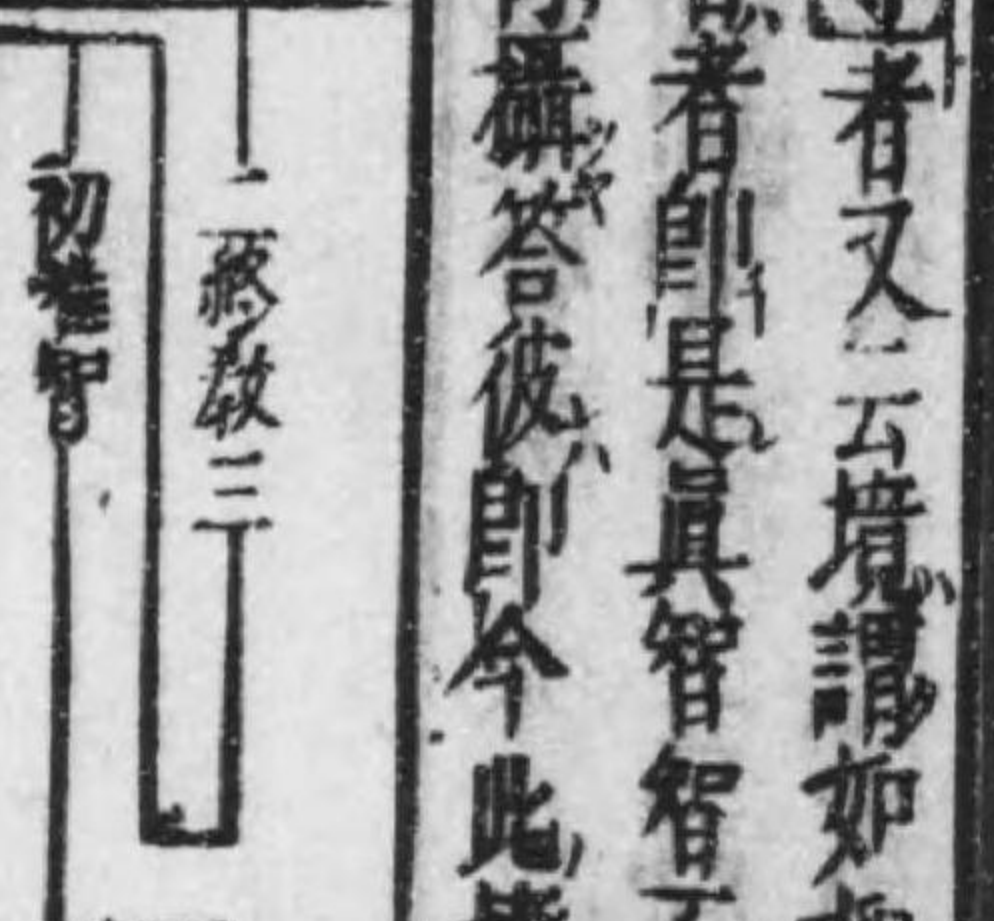 者又云境ハ謂如
者即是眞智智
攝答彼即今此
二終教三
初權智